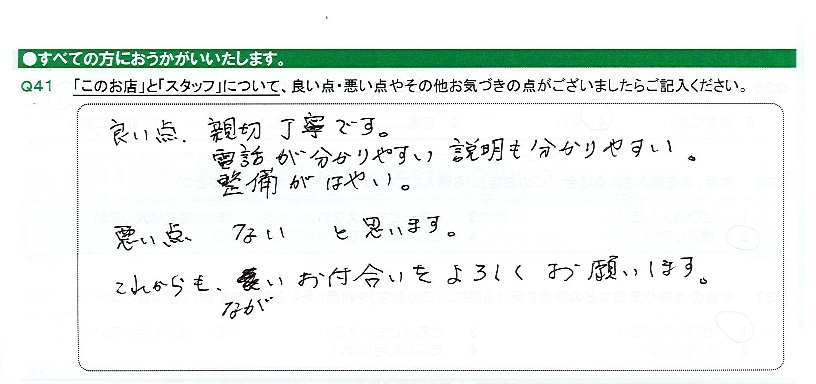 ●すべての方におうかがいいたします。
Q41 「このお店」と「スタッフ」について、良い点・悪い点やその他お気づきの点がございましたらご記入ください。
良い点、親切丁寧です。
電話が分かりやすい 説明も分かりやすい。
整備がはやい。
悪い点 ない と思います。
これからも、長い お付合いを よろしく お願いします。
なが